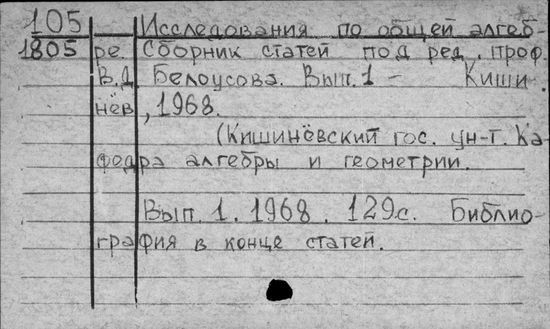 105 Исследования по общей алгеб-
1805 ре. Сборник статей под ред. проф.
В.Д. Белоусова. Вып. 1 - Киши
нёв, 1968.
(Кишинёвский гос. ун-т. Ка-
федра алгебры и геометрии.
Вып. 1. 1968. 129с. Библио-
графия в конце статей.